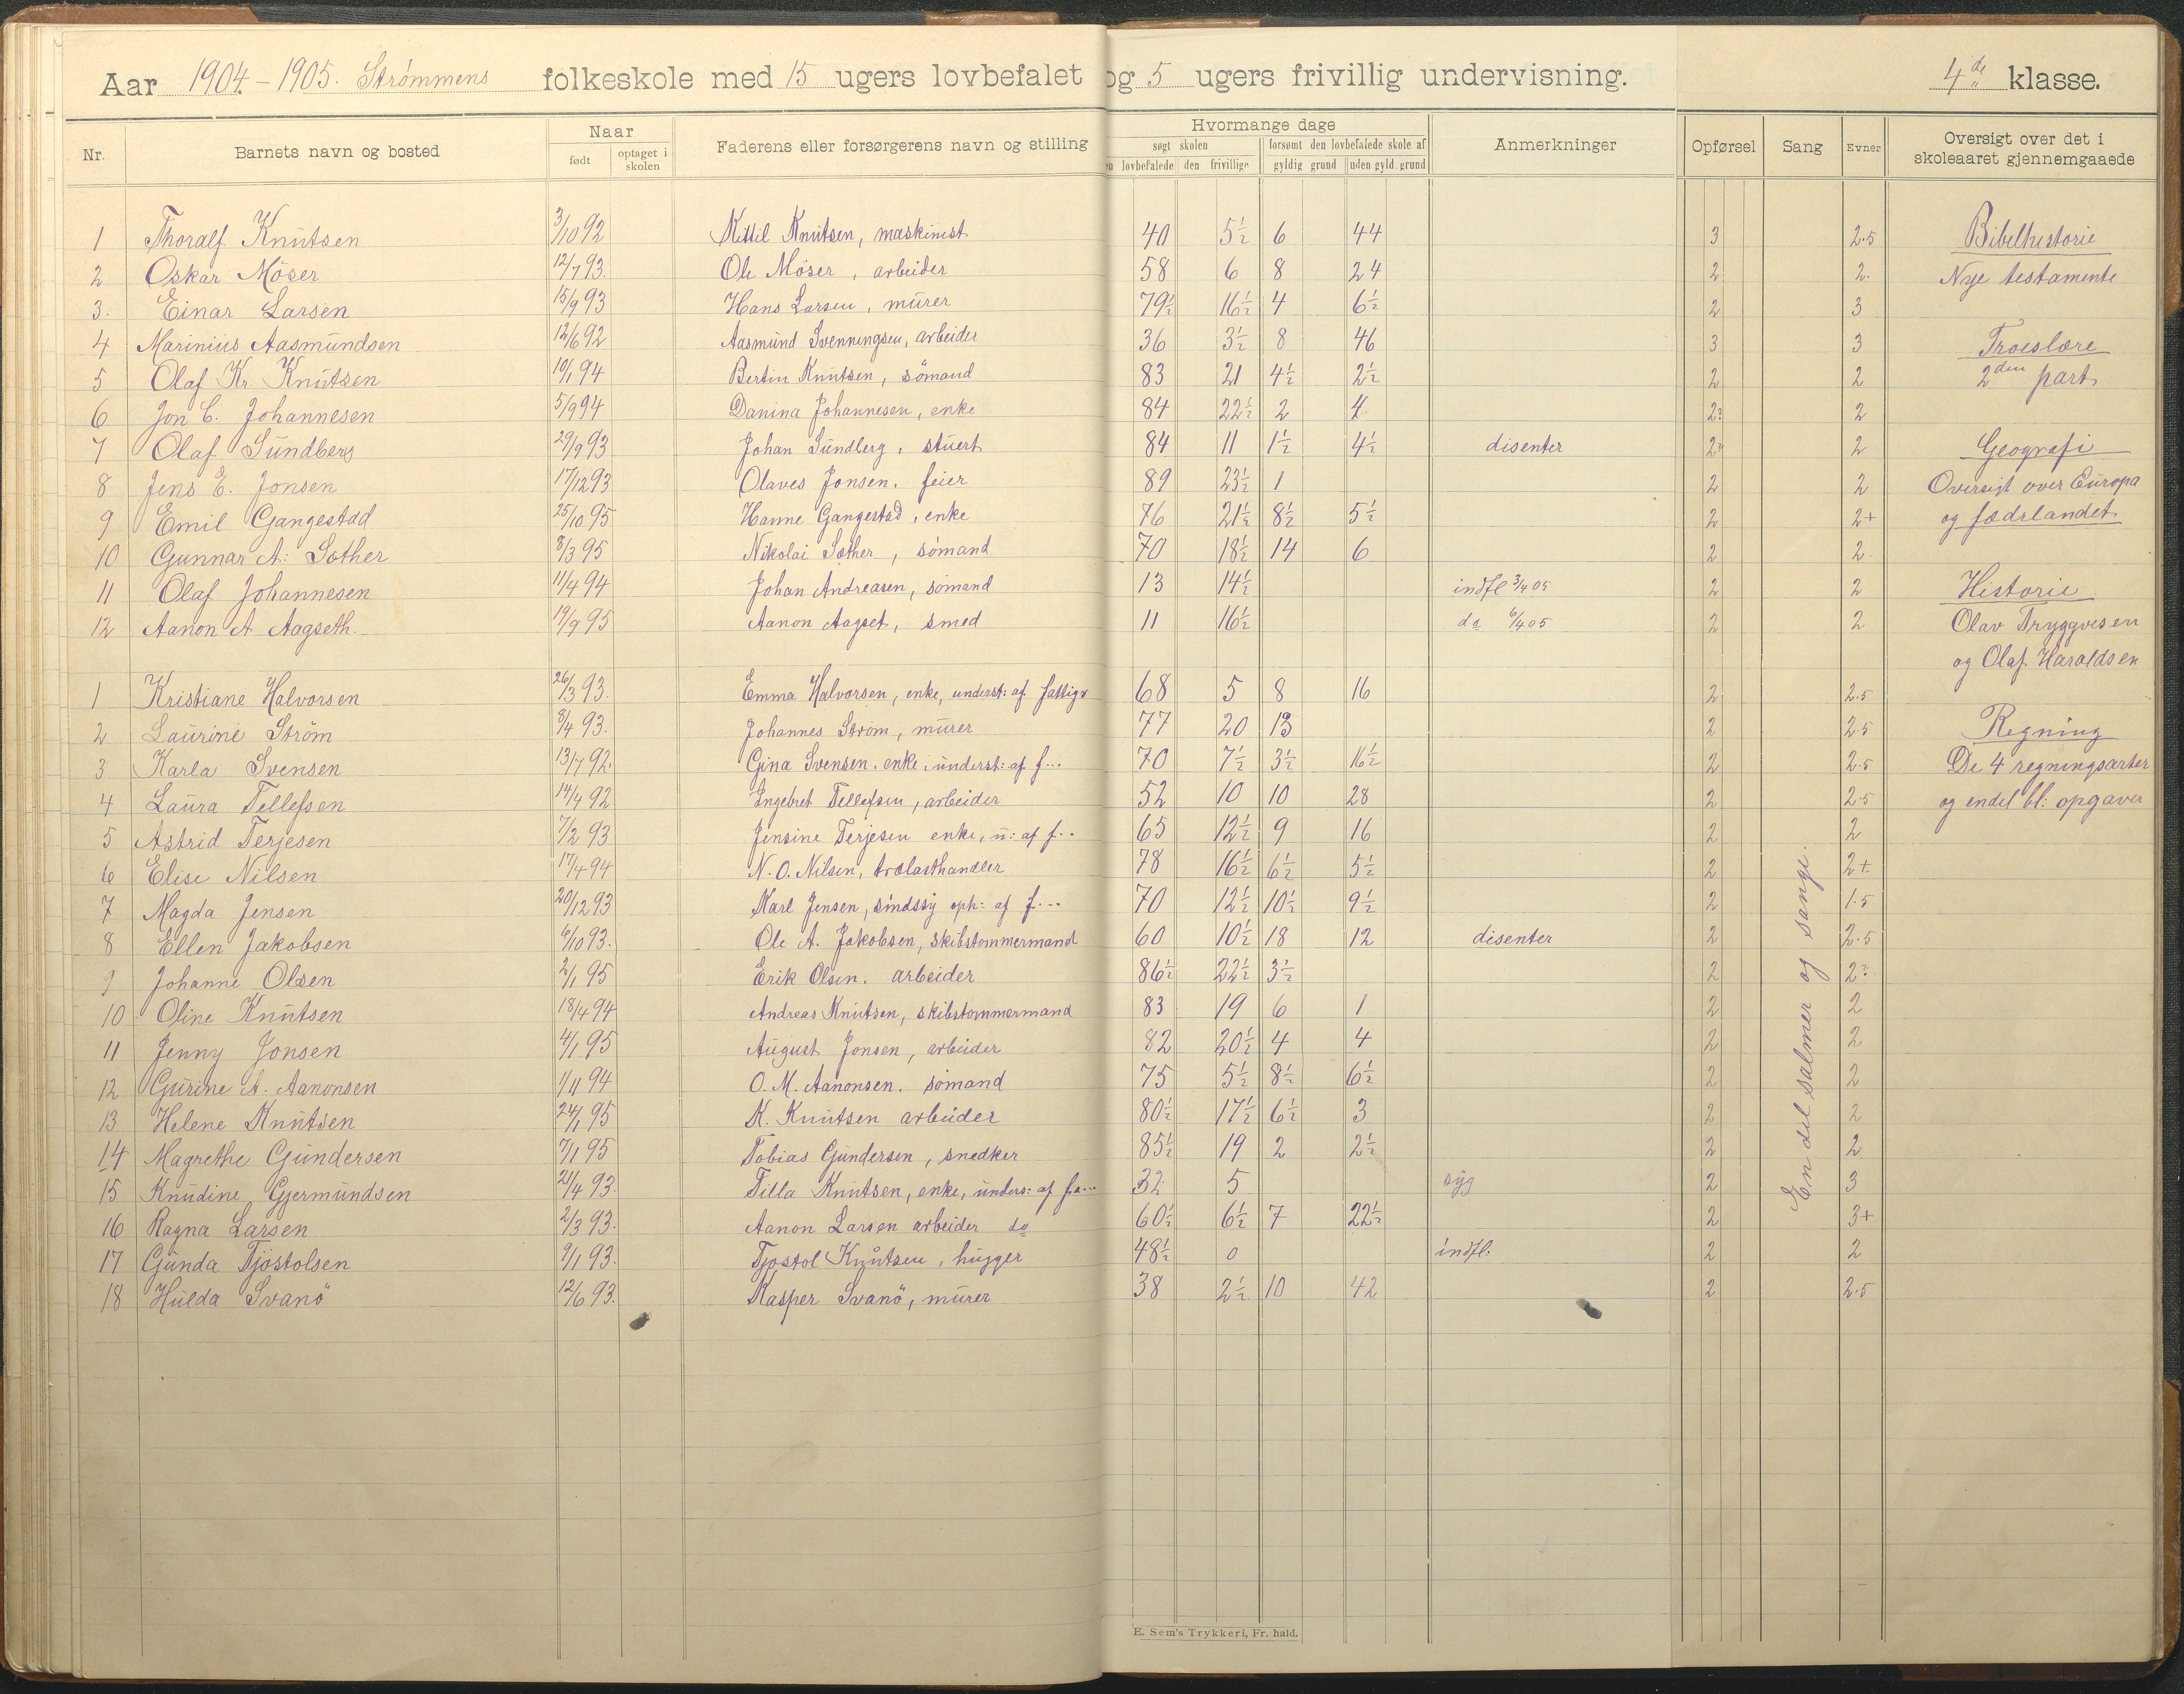 Aar 1904.-1905. Strømmens folkeskole med 15 ugers lovbefalet og 5 ugers frivillig undervisning. 4de klasse.
Nr. Barnets navn og bosted Naar født optaget i skolen Faderens eller forsørgerens navn og stilling Hvormange dage søgt skolen lovbefalede den frivillige forsømt den lovbefalede skole af gyldig grund uden gyld. grund Anmerkninger Opførsel Sang Evner Oversigt over det i skoleaaret gjennemgaaede
1 Thoralf Knutsen 3/10 92 Kittil Knutsen, maskinist 40 5½ 6 44 3 2.5 Bibelhistorie
2 Oskar Möser 12/7 93. Ole Möser, arbeider 58 6 8 24 2 2. Nye testamente
3. Einar Larsen 15/9 93 Hans Larsen, murer 79½ 16½ 4 6½ 2 3
4 Marinius Aasmundsen 12/6 92 Aasmund Svenningsen, arbeider 36 3½ 8 46 3 3 Troeslære
5 Olaf Kr. Knutsen 10/1 94 Bertin Knutsen, sömand 83 21 4½ 2½ 2 2 2den part
6 Jon C. Johannesen 5/9 94 Danina Johannesen, enke 84 22½ 2 4 2? 2
7 Olaf Sundberg 29/9 93 Johan Sundberg, stuert 84 11 1½ 4½ disenter 2? 2 Geografi
8 Jens E. Jonsen 17/12 93 Olaves Jonsen. feier 89 23½ 1 2 2 Oversigt over Europa
9 Emil Gangestad 25/10 95 Hanne Gangestad, enke 76 21½ 8½ 5½ 2 2+ og fædrlandet
10 Gunnar A: Sæther 8/3 95 Nikolai Sæther, sömand 70 18½ 14 6 2 2.
11 Olaf Johannesen 11/4 94 Johan Andreasen, sömand 13 14½ indfl 3/4 05 2 2 Historie
12 Aanon A Aagseth. 19/9 95 Aanon Aagset, smed 11 16½ do 6/4 05 2 2 Olav Tryggvesen
og Olaf Haraldsen
1 Kristiane Halvorsen 26/3 93. Emma Halvorsen, enke, underst: af fattigv 68 5 8 16 2 2.5
2 Laurine Ström 8/4 93. Johannes Ström, murer 77 20 13 2 2.5 Regning
3 Karla Svensen 13/7 92. Gina Svensen. enke, underst: af f... 70 7½ 3½ 16½ 2 2.5 De 4 regningsarter
4 Laura Tellefsen 14/4 92 Ingebret Tellefsen, arbeider 52 10 10 28 2 2.5 og endel bl: opgaver
5 Astrid Terjesen 7/2 93 Jensine Terjesen enke, u: af f.. 65 12½ 9 16 2 2
6 Elise Nilsen 17/4 94 N. O. Nilsen, trælasthandler 78 16½ 6½ 5½ 2 2+
7 Magda Jensen 20/12 93 Karl Jensen, sindssyg oph: af f... 70 12½ 10½ 9½ 2 1.5
8 Ellen Jakobsen 6/10 93. Ole A. Jakobsen, skibstommermand 60 10½ 18 12 disenter 2 2.5
9 Johanne Olsen 2/1 95 Erik Olsen. arbeider 86½ 22½ 3½ 2 2?
10 Oline Knutsen 18/4 94 Andreas Knutsen, skibstommermand 83 19 6 1 2 2
11 Jenny Jonsen 4/1 95 August Jonsen, arbeider 82 20½ 4 4 2 2
12 Gurine A. Aanonsen 1/11 94 O. M. Aanonsen. sömand 75 5½ 8½ 6½ 2 2
13 Helene Knutsen 24/1 95 K. Knutsen arbeider 80½ 17½ 6½ 3 2 2
14 Magrethe Gundersen 7/1 95 Tobias Gundersen, snedker 85½ 19 2 2½ 2 2
15 Knudine Gjermundsen 21/4 93. Tilla Knutsen, enke, unders: af fa... 32 5 syg 2 3
16 Ragna Larsen 2/3 93. Aanon Larsen arbeider do 60½ 6½ 7 22½ 2 3+
17 Gunda Tjöstolsen 9/1 93. Tjostol Knutsen, hugger 48½ 0 indfl: 2 2
18 Hulda Svanö 12/6 93. Kasper Svanö, murer 38 2½ 10 42 2 2.5
En del salmer og sange.
E. Sem's Trykkeri, Fr. hald.